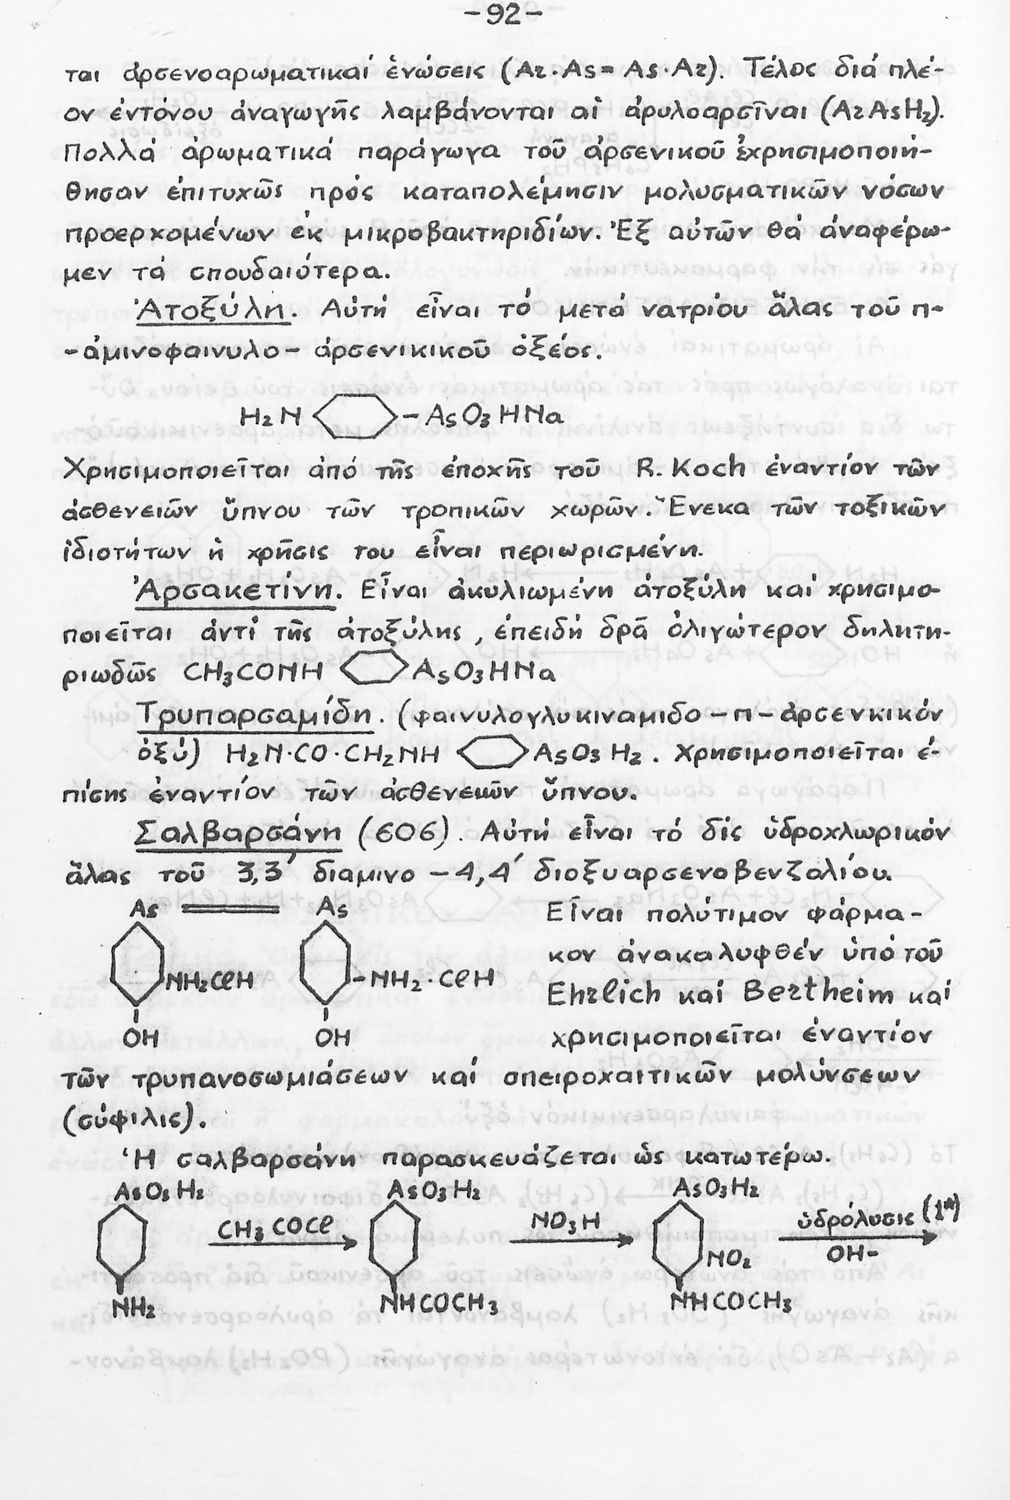 -92-
ται ἀρσενοαρωματικαί ἑνώσεις (Ar·As=As·Ar). Τέλος διά πλέ-
ον ἐντόνου ἀναγωγῆς λαμβάνονται αἱ ἀρυλοαρσῖναι (ArAsH₂).
Πολλά ἀρωματικά παράγωγα τοῦ ἀρσενικοῦ ἐχρησιμοποιή-
θησαν ἐπιτυχῶς πρός καταπολέμησιν μολυσματικῶν νόσων
προερχομένων ἐκ μικροβακτηριδίων. Ἐξ αὐτῶν θά ἀναφέρω-
μεν τά σπουδαιότερα.
Ἀτοξύλη. Αὐτή εἶναι τό μετά νατρίου ἅλας τοῦ π-
-ἀμινοφαινυλο-ἀρσενικικοῦ ὀξέος.
H₂N -AsO₃HNa
Χρησιμοποιεῖται ἀπό τῆς ἐποχῆς τοῦ R. Koch ἐναντίον τῶν
ἀσθενειῶν ὕπνου τῶν τροπικῶν χωρῶν. Ἕνεκα τῶν τοξικῶν
ἰδιοτήτων ἡ χρῆσις του εἶναι περιωρισμένη.
Ἀρσακετίνη. Εἶναι ἀκυλιωμένη ἀτοξύλη καί χρησιμο-
ποιεῖται ἀντί τῆς ἀτοξύλης, ἐπειδή δρᾶ ὀλιγώτερον δηλητη-
ριωδῶς CH₃CONH AsO₃HNa
Τρυπαρσαμίδη. (φαινυλογλυκιναμιδο-π-ἀρσενκικόν
ὀξύ) H₂N·CO·CH₂NH AsO₃H₂. Χρησιμοποιεῖται ἐ-
πίσης ἐναντίον τῶν ἀσθενειῶν ὕπνου.
Σαλβαρσάνη (606). Αὐτή εἶναι τό δίς ὑδροχλωρικόν
ἅλας τοῦ 3,3΄ διαμινο-4,4΄ διοξυαρσενοβενζολίου.
As As
Εἶναι πολύτιμον φάρμα-
κον ἀνακαλυφθέν ὑπό τοῦ
NH₂ClH -NH₂·ClH
Ehrlich καί Bertheim καί
OH OH
χρησιμοποιεῖται ἐναντίον
τῶν τρυπανοσωμιάσεων καί σπειροχαιτικῶν μολύνσεων
(σύφιλις).
Ἡ σαλβαρσάνη παρασκευάζεται ὡς κατωτέρω.
AsO₃H₂ AsO₃H₂ AsO₃H₂
CH₃COCl NO₃H ὑδρόλυσις
NO₂ OH-
NH₂ NHCOCH₃ NHCOCH₃